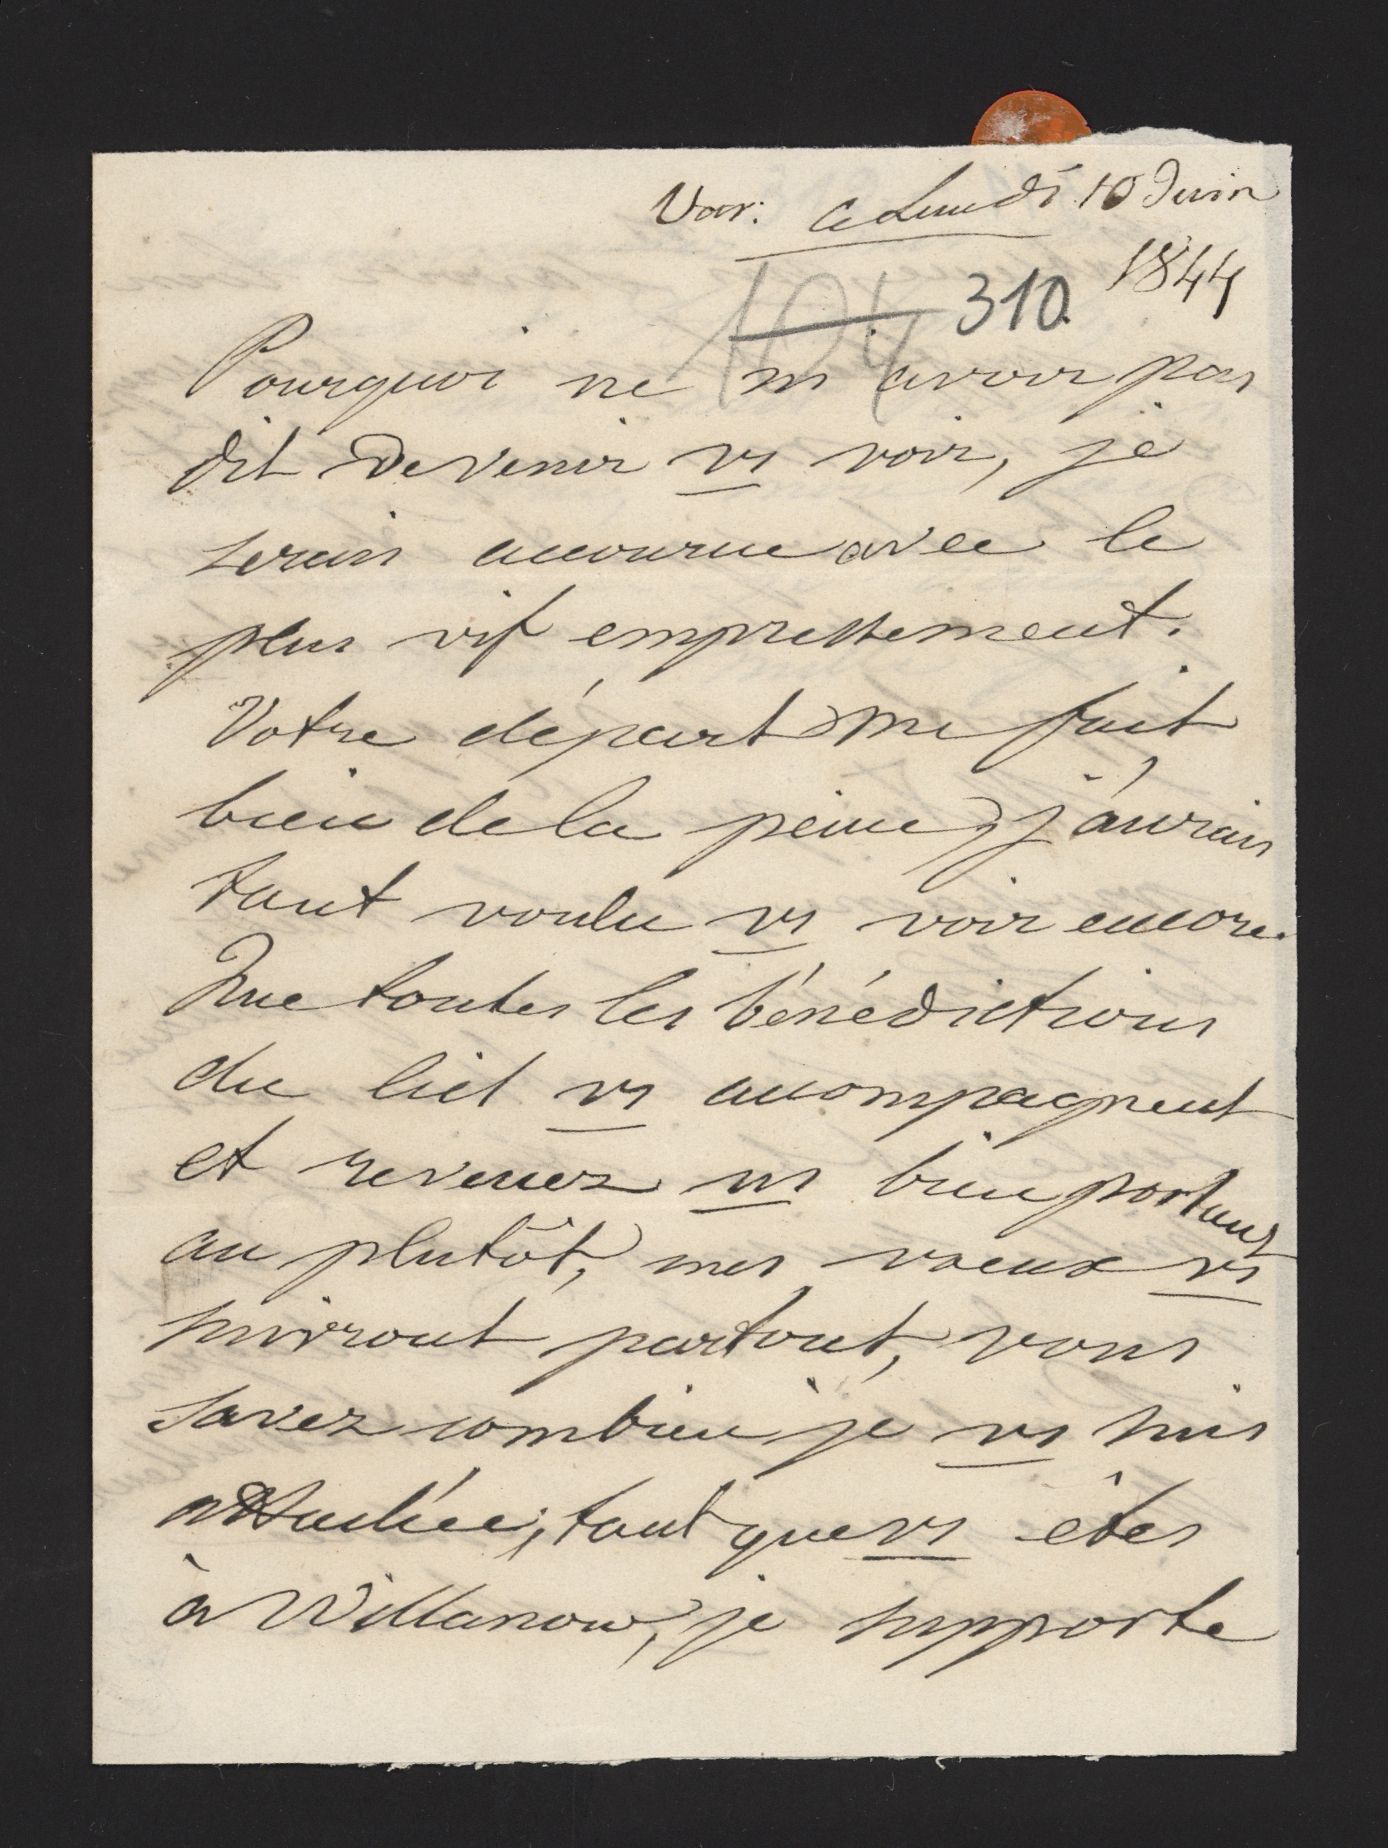 Var: ce Lundi 10 Juin
1844
104 310
Pourquoi ne m'avoir pas
dit de venir vs voir, je
serais accourue avec le
plus vif empressement.
Votre départ me fait
bien de la peine, j'aurais
tant voulu vs voir encore.
Que toutes les bénédictions
du Ciel vs accompagnent
et revenez ns bien portant
au plutôt, mes vœux vs
suivront partout, vous
savez combien je vs suis
attachée, tant que vs êtes
à Willanow, je supporte